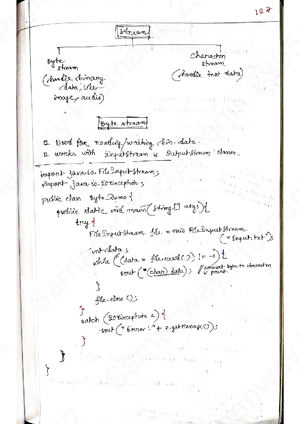 127
Stream
Byte
Stream
(handle binary
data, like
image, audio)
Character
Stream
(handle text data)
Byte stream
Used for reading/writing bin data.
works with InputStream & OutputStream classes.
import java.io.FileInputStream;
import java.io.IOException;
public class Byte Demo {
public static void main (String [] args) {
try {
FileInputStream file = new FileInputStream
("Input.txt");
int data;
while ((data = file.read()) != -1) {
sout ((char) data); // convert byte to character
& print
}
file.close ();
}
catch (IOException e) {
sout ("Error:" + e.getMessage());
}
}
}